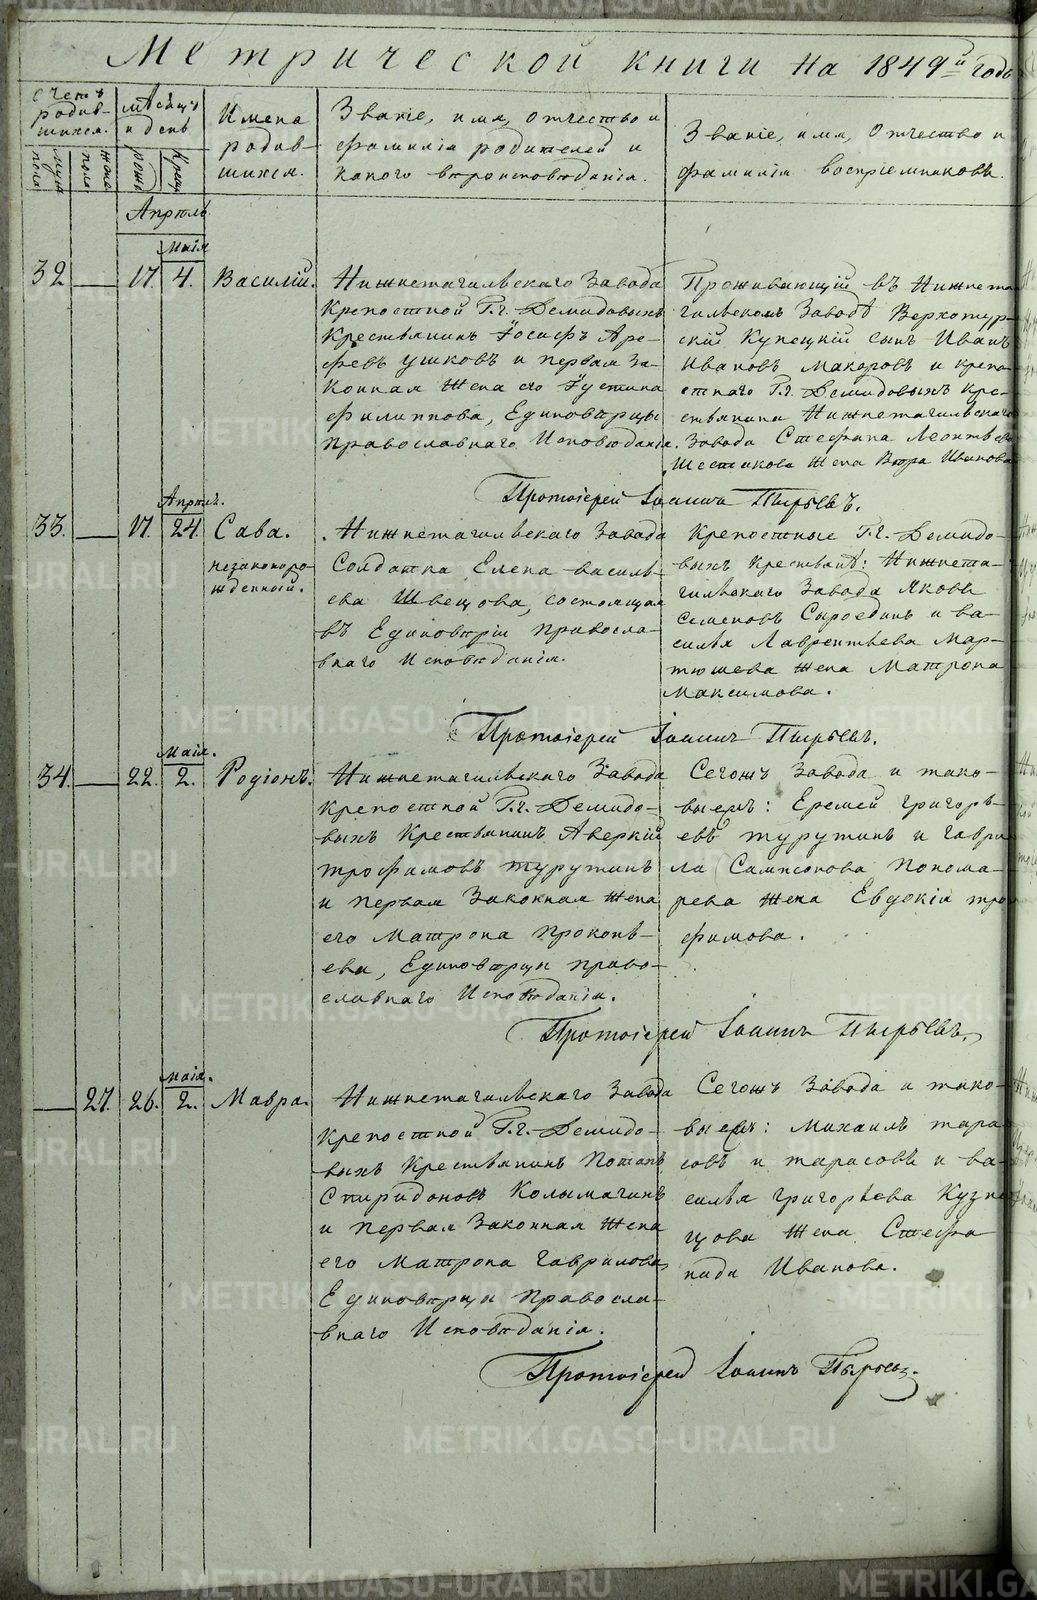 Метрической книги на 1849й годъ
счетъ родив-
шихся.
муже
пола
жене
пола
мѣсяцъ
и день
рожд
крещ
Имена
родив-
шихся.
Званіе, имя, отчество и
фамилія родителей и
какого вѣроисповѣданія.
Званіе, имя, отчество и
фамилія воспріемниковъ.
Апрѣль
Маія
32
17
4.
Василій.
Нижнетагильскаго Завода
Крепостной Г.г. Демидовыхъ
Крестьянинъ Іосифъ Аре-
фьевъ Ушковъ и первая за-
конная жена его Іустина
Филиппова, Единовѣрцы
Православнаго Исповѣданія.
Проживающій въ Нижнета-
гильскомъ Заводѣ Верхотур-
скій Купецкій сынъ Иванъ
Ивановъ Макаровъ и крепо-
стнаго Г.г. Демидовыхъ кре-
стьянина Нижнетагильскаго
Завода Стефана Леонтьева
Шестакова жена Вѣра Иванова
Протоіерей Іоаннъ Пырьевъ.
Апрѣль.
33.
17.
24.
Сава.
незаконоро-
жденный.
Нижнетагильскаго Завода
Солдатка Елена Василь-
ева Швецова, состоящая
въ Единовѣріи Правосла-
внаго Исповѣданія.
Крепостные Г.г. Демидо-
выхъ Крестьянѣ: Нижнета-
гильскаго Завода Яковъ
Семеновъ Сыроединъ и Ва-
силья Лаврентьева Мар-
тюшева жена Матрона
Максимова.
Протоіерей Іоаннъ Пырьевъ.
Маія.
34.
22.
2.
Родіонъ.
Нижнетагильскаго Завода
Крепостной Г.г. Демидо-
выхъ Крестьянинъ Аверкій
Трофимовъ Турутинъ
и первая Законная жена
его Матрона Прокопь-
ева, Единовѣрцы Право-
славнаго Исповѣданія.
Сегожъ Завода и тако-
выежъ: Еремей Григорь-
евъ Турутинъ и Гаври-
ла Самсонова Понома-
рева жена Евдокія Тро-
фимова.
Протоіерей Іоаннъ Пырьевъ.
Маія.
27.
26.
2.
Мавра.
Нижнетагильскаго Завода
Крепостной Г.г. Демидо-
выхъ Крестьянинъ Потапъ
Спиридоновъ Колымагинъ
и первая Законная жена
его Матрона Гаврилова,
Единовѣрцы Правосла-
внаго Исповѣданія.
Сегожъ Завода и тако-
выежъ: Михаилъ Тара-
совъ и Тарасовъ и Ва-
силья Григорьева Кузне-
цова жена Стефа-
нида Иванова.
Протоіерей Іоаннъ Пырьевъ.
METRIKI.GASO-URAL.RU